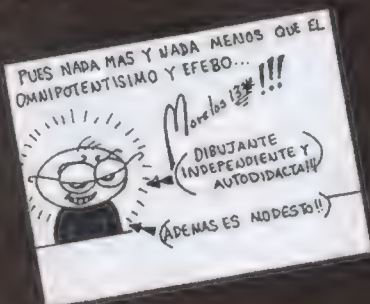 PUES NADA MAS Y NADA MENOS QUE EL
OMNIPOTENTISIMO Y EFEBO...
Morelos !!!
DIBUJANTE
INDEPENDIENTE Y
AUTODIDACTA!!!
ADEMAS ES MODESTO!!